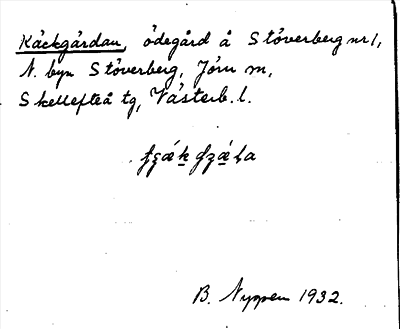 Käckgårdan, ödegård å Stöverberg nr 1,
N. byn Stöverberg, Jörn sn,
Skellefteå tg, Västerb. l.
B. Nyppen 1932.